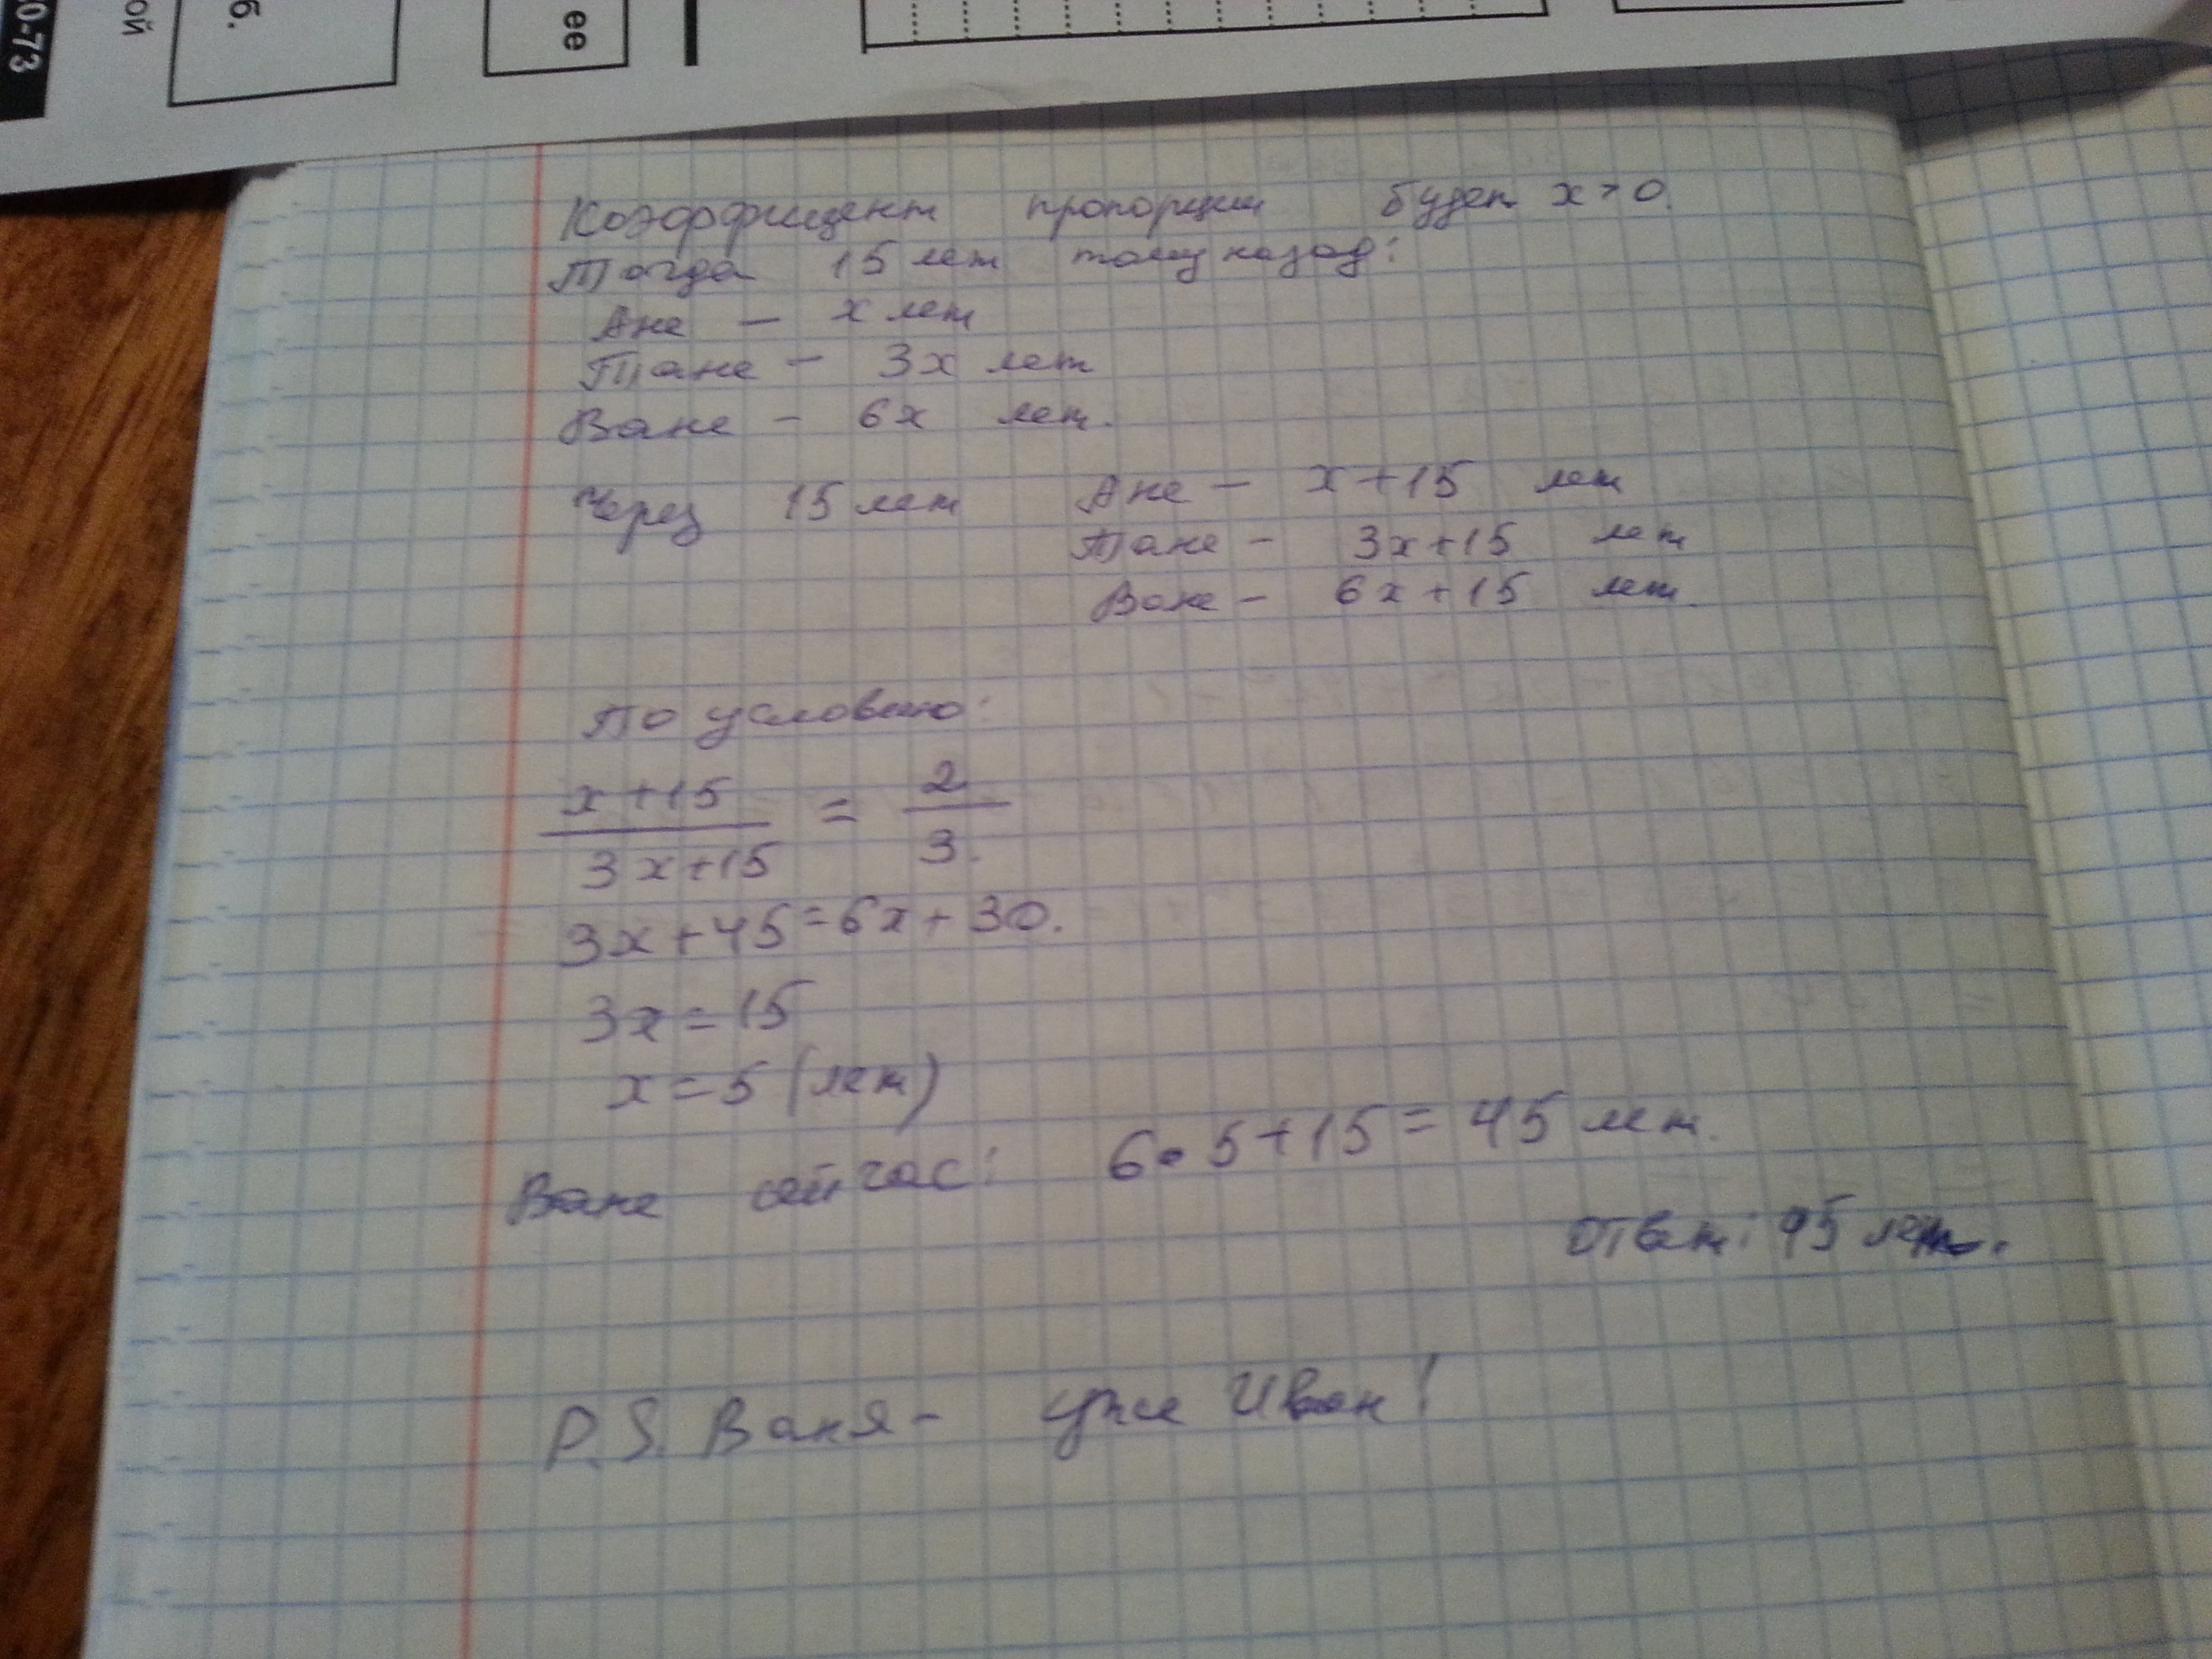 0-73
ой
б.
ее
Коэффициент пропорции будет x > 0.
Тогда 15 лет тому назад:
Ане - x лет
Тане - 3x лет
Ване - 6x лет.
Через 15 лет Ане - x+15 лет
Тане - 3x+15 лет
Ване - 6x+15 лет.
По условию:
x+15 / 3x+15 = 2 / 3.
3x+45=6x+30.
3x=15
x=5 (лет)
Ване сейчас: 6•5+15=45 лет.
Ответ: 45 лет.
P.S. Ваня - уже Иван!